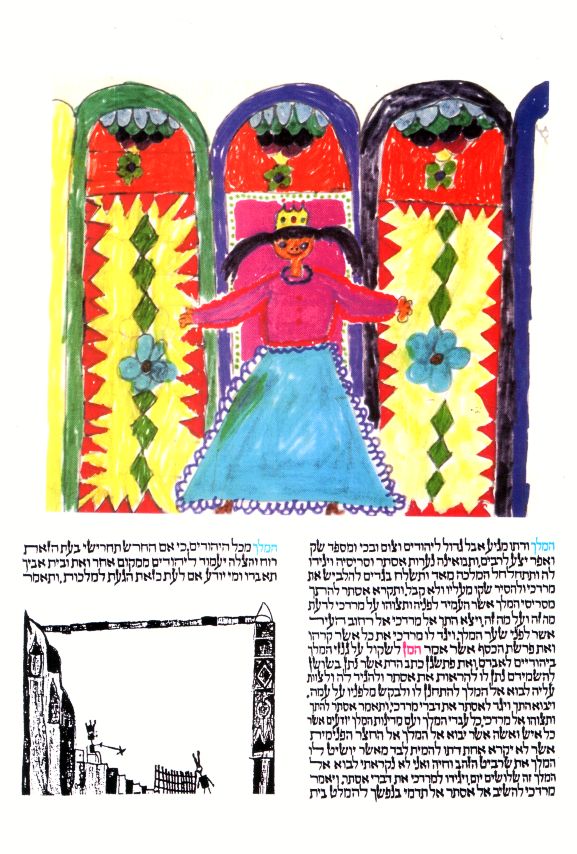 המלך ודתו מגיע אבל גדול ליהודים וצום ובכי ומספד שק
ואפר יצע לרבים, ותבואינה נערות אסתר וסריסיה ויגידו
לה ותתחלחל המלכה מאד ותשלח בגדים להלביש את
מרדכי ולהסיר שקו מעליו ולא קבל, ותקרא אסתר להתך
מסריסי המלך אשר העמיד לפניה ותצוהו על מרדכי לדעת
מה זה ועל מה זה, ויצא התך אל מרדכי אל רחוב העיר
אשר לפני שער המלך, ויגד לו מרדכי את כל אשר קרהו
ואת פרשת הכסף אשר אמר המן לשקול על גנזי המלך
ביהודיים לאבדם, ואת פתשגן כתב הדת אשר נתן בשושן
להשמידם נתן לו להראות את אסתר ולהגיד לה ולצוות
עליה לבוא אל המלך להתחנן לו ולבקש מלפניו על עמה,
ויבוא התך, ויגד לאסתר את דברי מרדכי, ותאמר אסתר להתך
ותצוהו אל מרדכי, כל עבדי המלך ועם מדינות המלך יודעים אשר
כל איש ואשה אשר יבוא אל המלך אל החצר הפנימית
אשר לא יקרא אחת דתו להמית לבד מאשר יושיט לו
המלך את שרביט הזהב וחיה ואני לא נקראתי לבוא אל
המלך זה שלושים יום, ויגידו למרדכי את דברי אסתר, ויאמר
מרדכי להשיב אל אסתר אל תדמי בנפשך להמלט בית
המלך מכל היהודים, כי אם החרש תחרישי בעת הזאת
רוח והצלה יעמוד ליהודים ממקום אחר ואת ובית אביך
תאבדו ומי יודע אם לעת כזאת הגעת למלכות, ותאמר